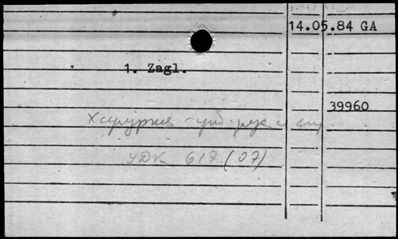 14.05.84 GA
1. Zagl.
39960
Хирургия - уч. рук. и спр.
УДК 617 (07)